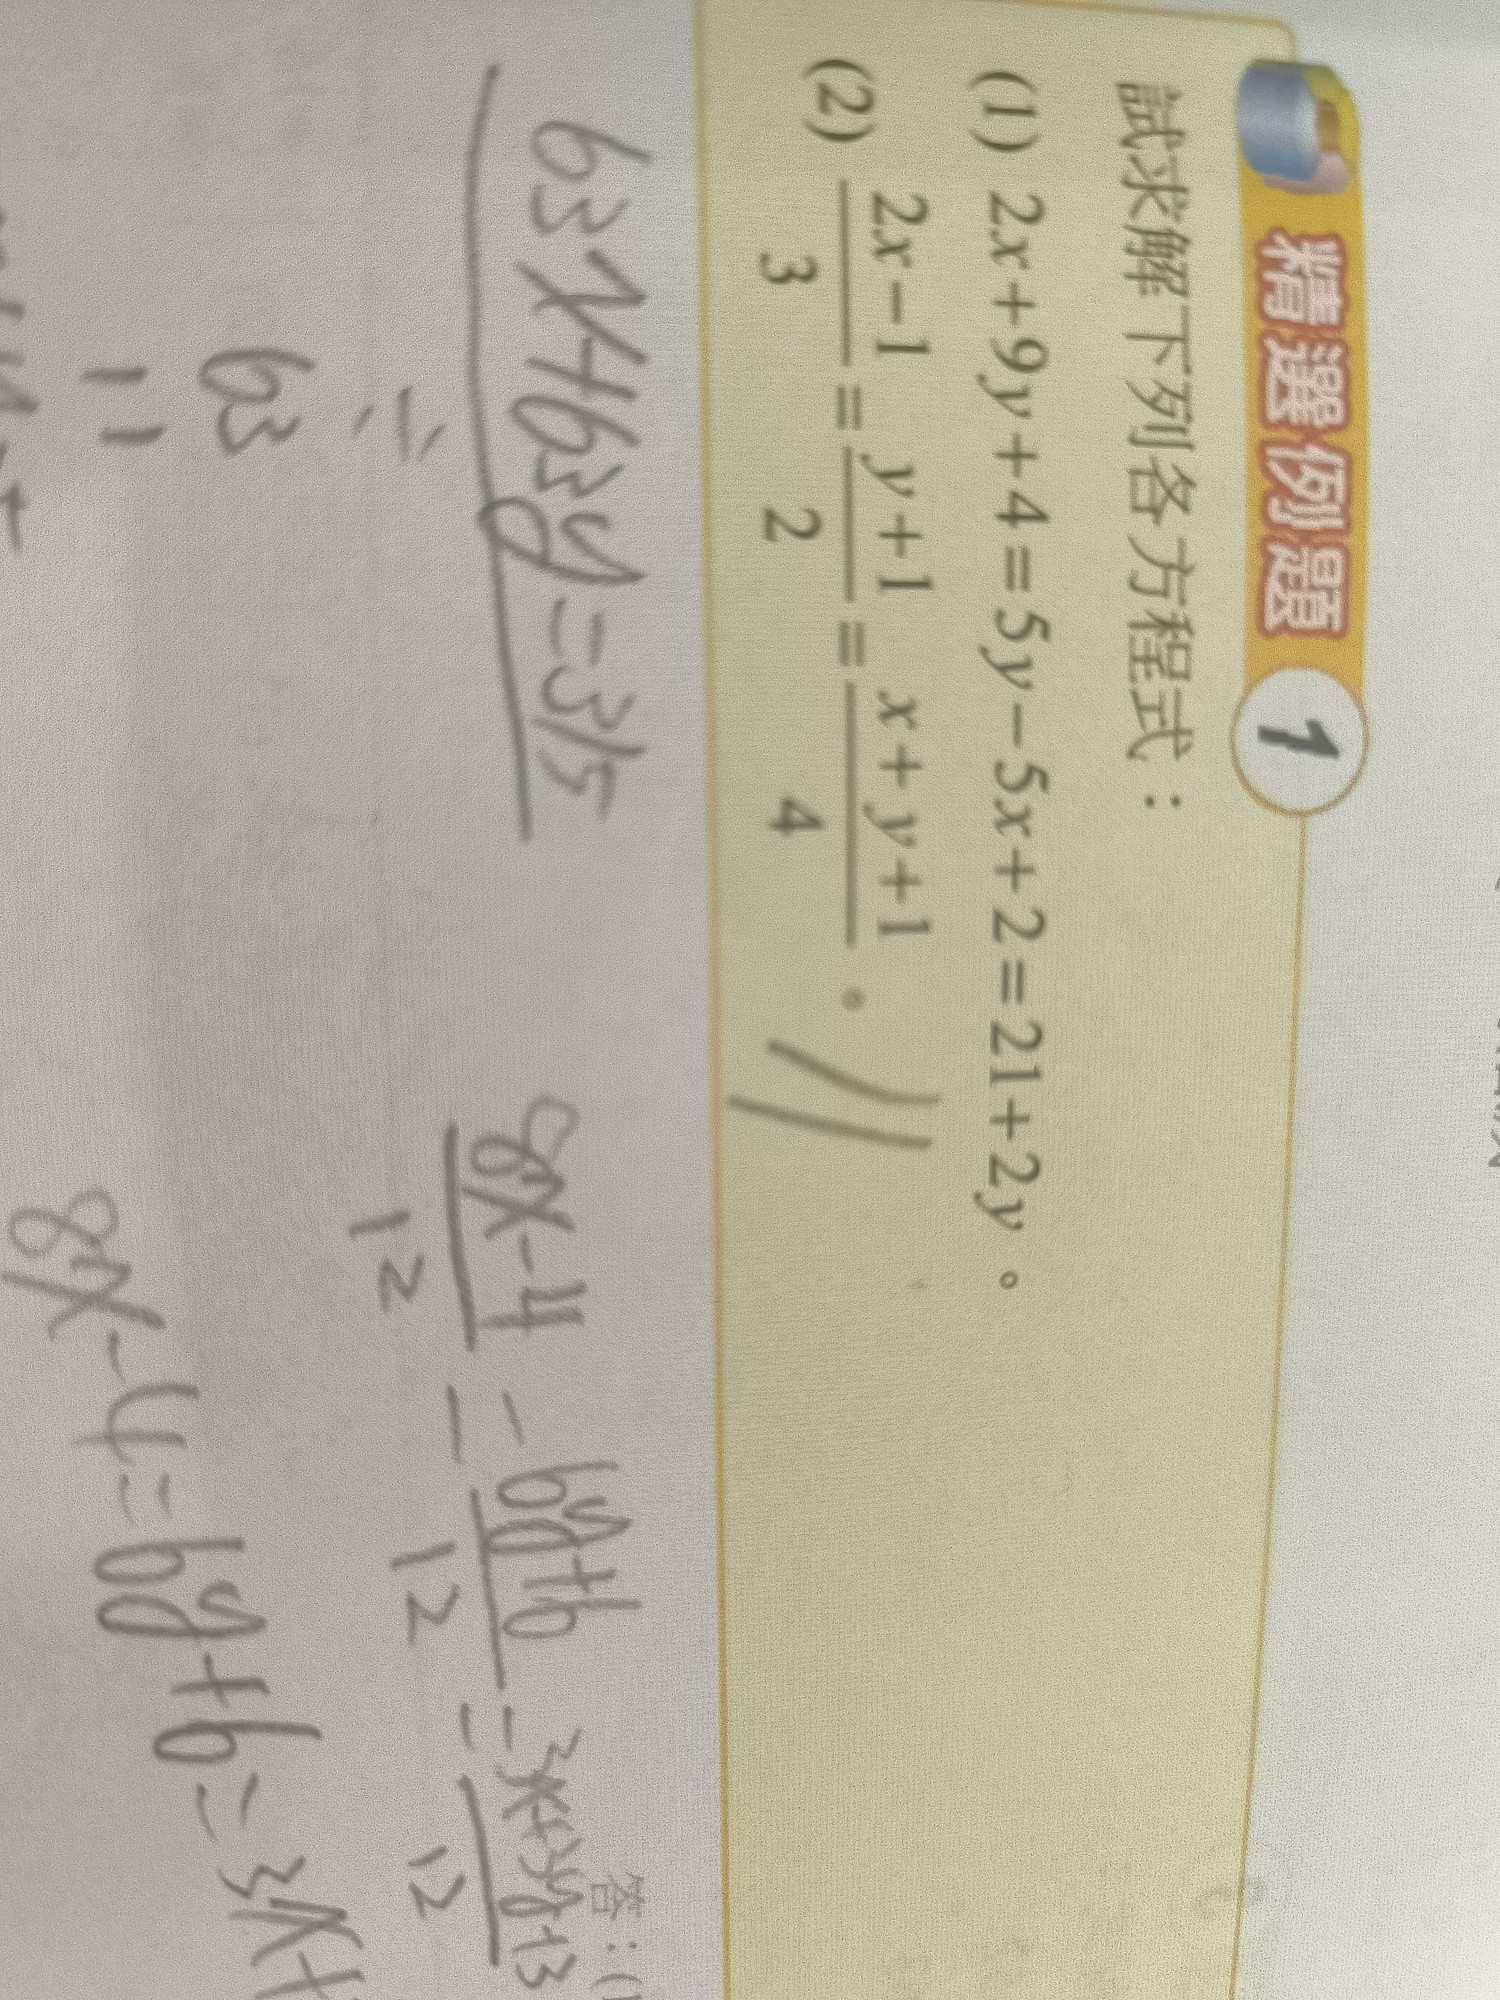 精選例題 1
試求解下列各方程式：
(1) 2x+9y+4=5y-5x+2=21+2y。
(2) \frac{2x-1}{3}=\frac{y+1}{2}=\frac{x+y+1}{4}。
答：(1
63x+63y=315
=
63
\frac{8x-4}{12}=\frac{6y+6}{12}=\frac{3x+3y+3}{12}
8x-4=6y+6=3x+